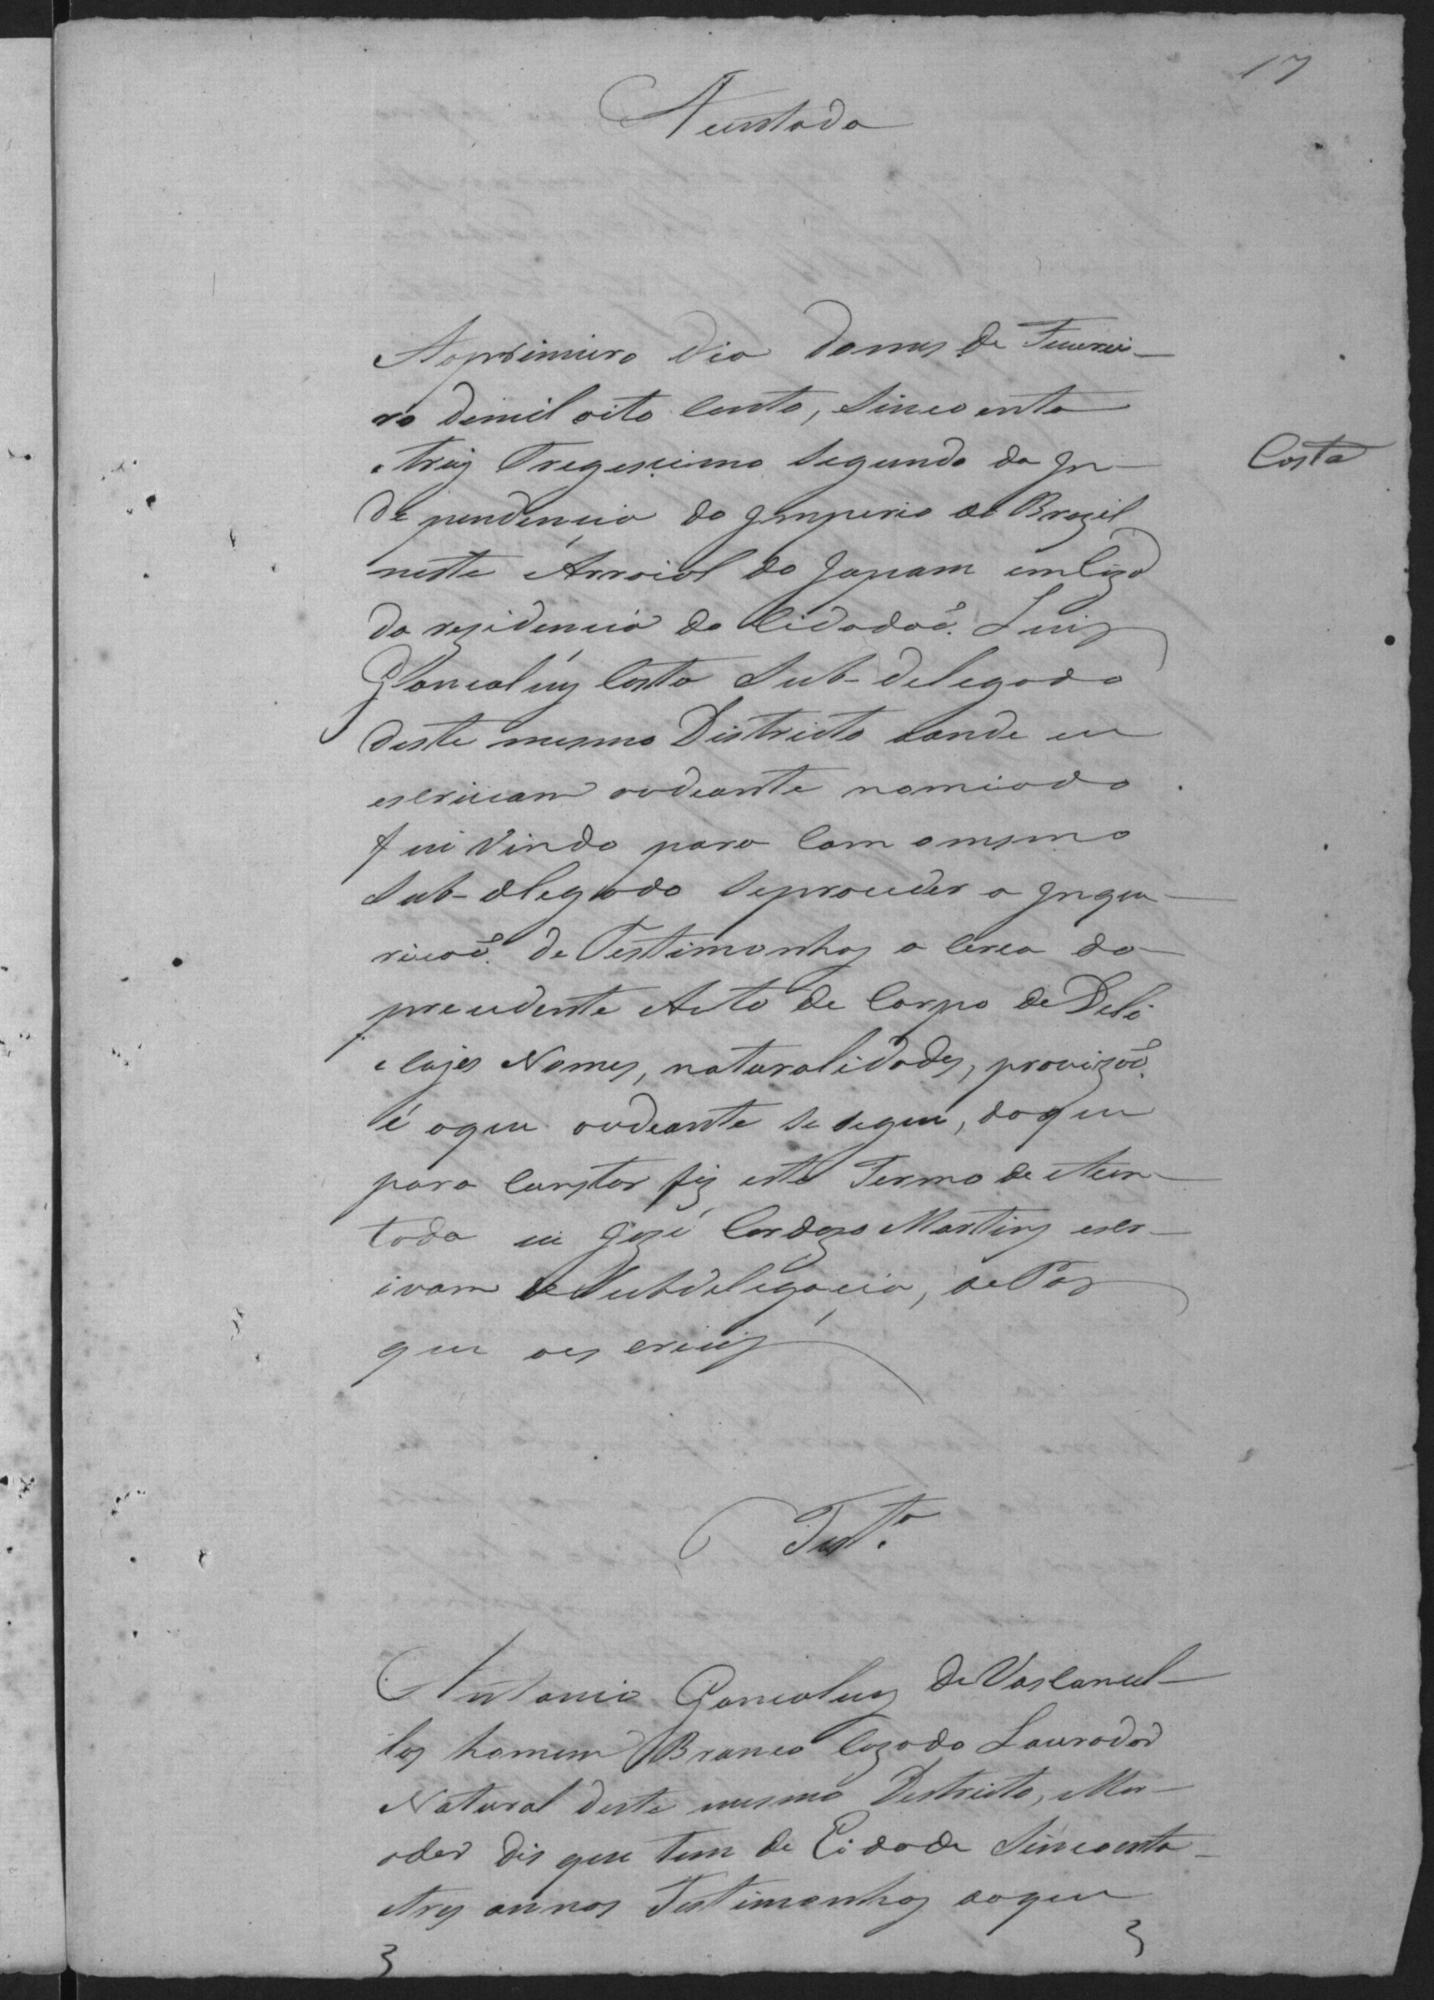 17
Aceutada
Ao primeiro dia do mes de Feverei-
ro de mil oito cento, sincoenta
e tres Tregescimo segundo da In-
dependencia do Imperio do Brazil
neste Arraial do Japam em Caza
da rezidencia do Cidadaõ Luiz
Costa
Goncalves Costa Sub-delegado
deste mesmo Districto aonde eu
escrivam audeante nomiado
fui vindo para com o mesmo
Sub-delegado se proceder a Inque-
ricaõ de Testimonhas a cerca do
precedente Auto de Corpo de Deli
e cujos Nomes, naturalidades, provizoẽs
é o que audeante se segue, do que
para constar fiz este Termo de Acen-
tada eu José Cardozo Martins escr-
ivam da Subdelegacia, de Paz
que o escrivy
Test.ª
Antonio Goncalves de Vasconcel-
los homem Branco Cazado Lavrador
Natural deste mesmo Destricto, Mor-
ador dis que tem de Eidade Sincoenta
e tres annos Testimonhas ao que